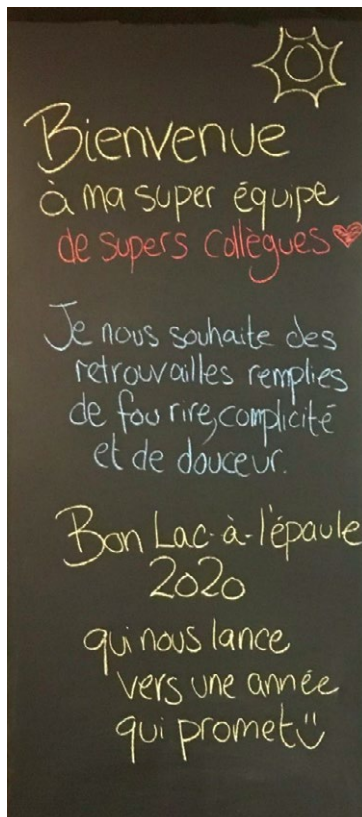 Bienvenue
à ma super équipe
de supers collègues
Je nous souhaite des
retrouvailles remplies
de fou rire, complicité
et de douceur.
Bon Lac-à-l'épaule
2020
qui nous lance
vers une année
qui promet